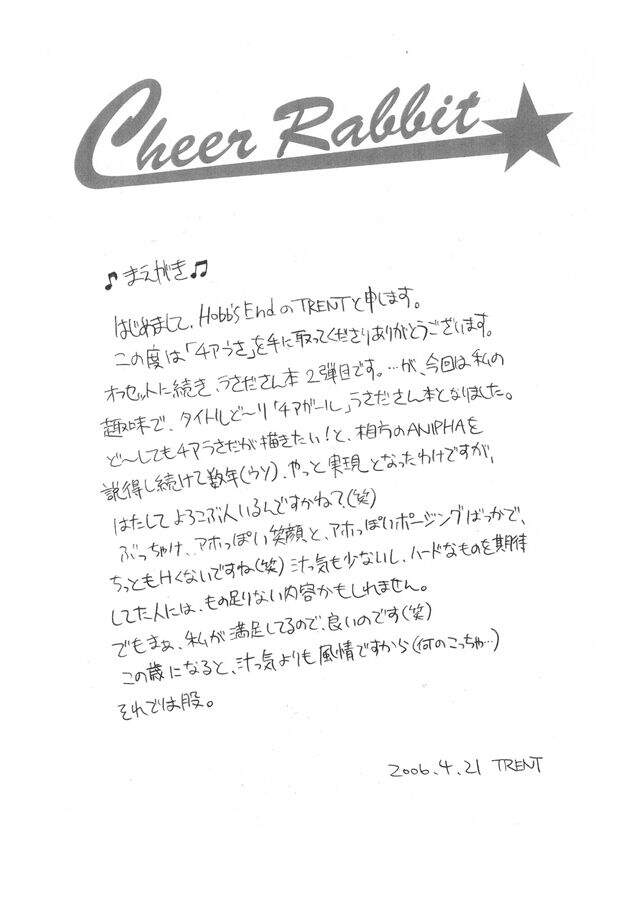 Cheer Rabbit
♪まえがき♫
はじめまして、Hobb's EndのTRENTと申します。
この度は「チアうさ」を手に取ってくださりありがとうございます。
オフセットに続き、うさださん本2弾目です。…が、今回は私の
趣味で、タイトルど〜り「チアガール」うさださん本となりました。
ど〜してもチアうさだが描きたい!と、相方のANIPHAを
説得し続けて数年(ウソ)、やっと実現となったわけですが、
はたしてよろこぶ人いるんですかねで(笑)
ぶっちゃけ、アホっぽい笑顔と、アホっぽいポージングばっかで、
ちっともHくないですね(笑)汁っ気も少ないし、ハードなものを期待
してた人には、もの足りない内容かもしれません。
でもまぁ、私が満足してるので、良いのです(笑)
この歳になると、汁っ気よりも風情ですから(何のこっちゃ…)
それでは股。
2006.4.21 TRENT